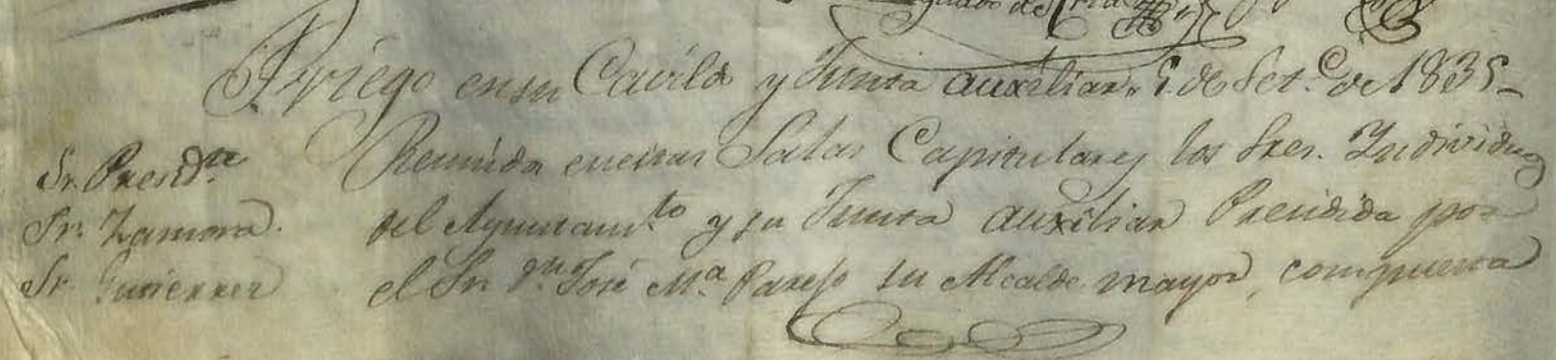 Priego en su Cavildo y Junta auxiliar 5 de Set.e de 1835
Sr. Presid.te
Sr. Zamora.
Sr. Gutierrez
Reunida en estas Salas Capitulares los Sres. Individuos
del Ayuntam.to y su Junta auxiliar Presidida por
el Sr. Dn. José Ma. Parejo su Alcalde mayor, compuesta